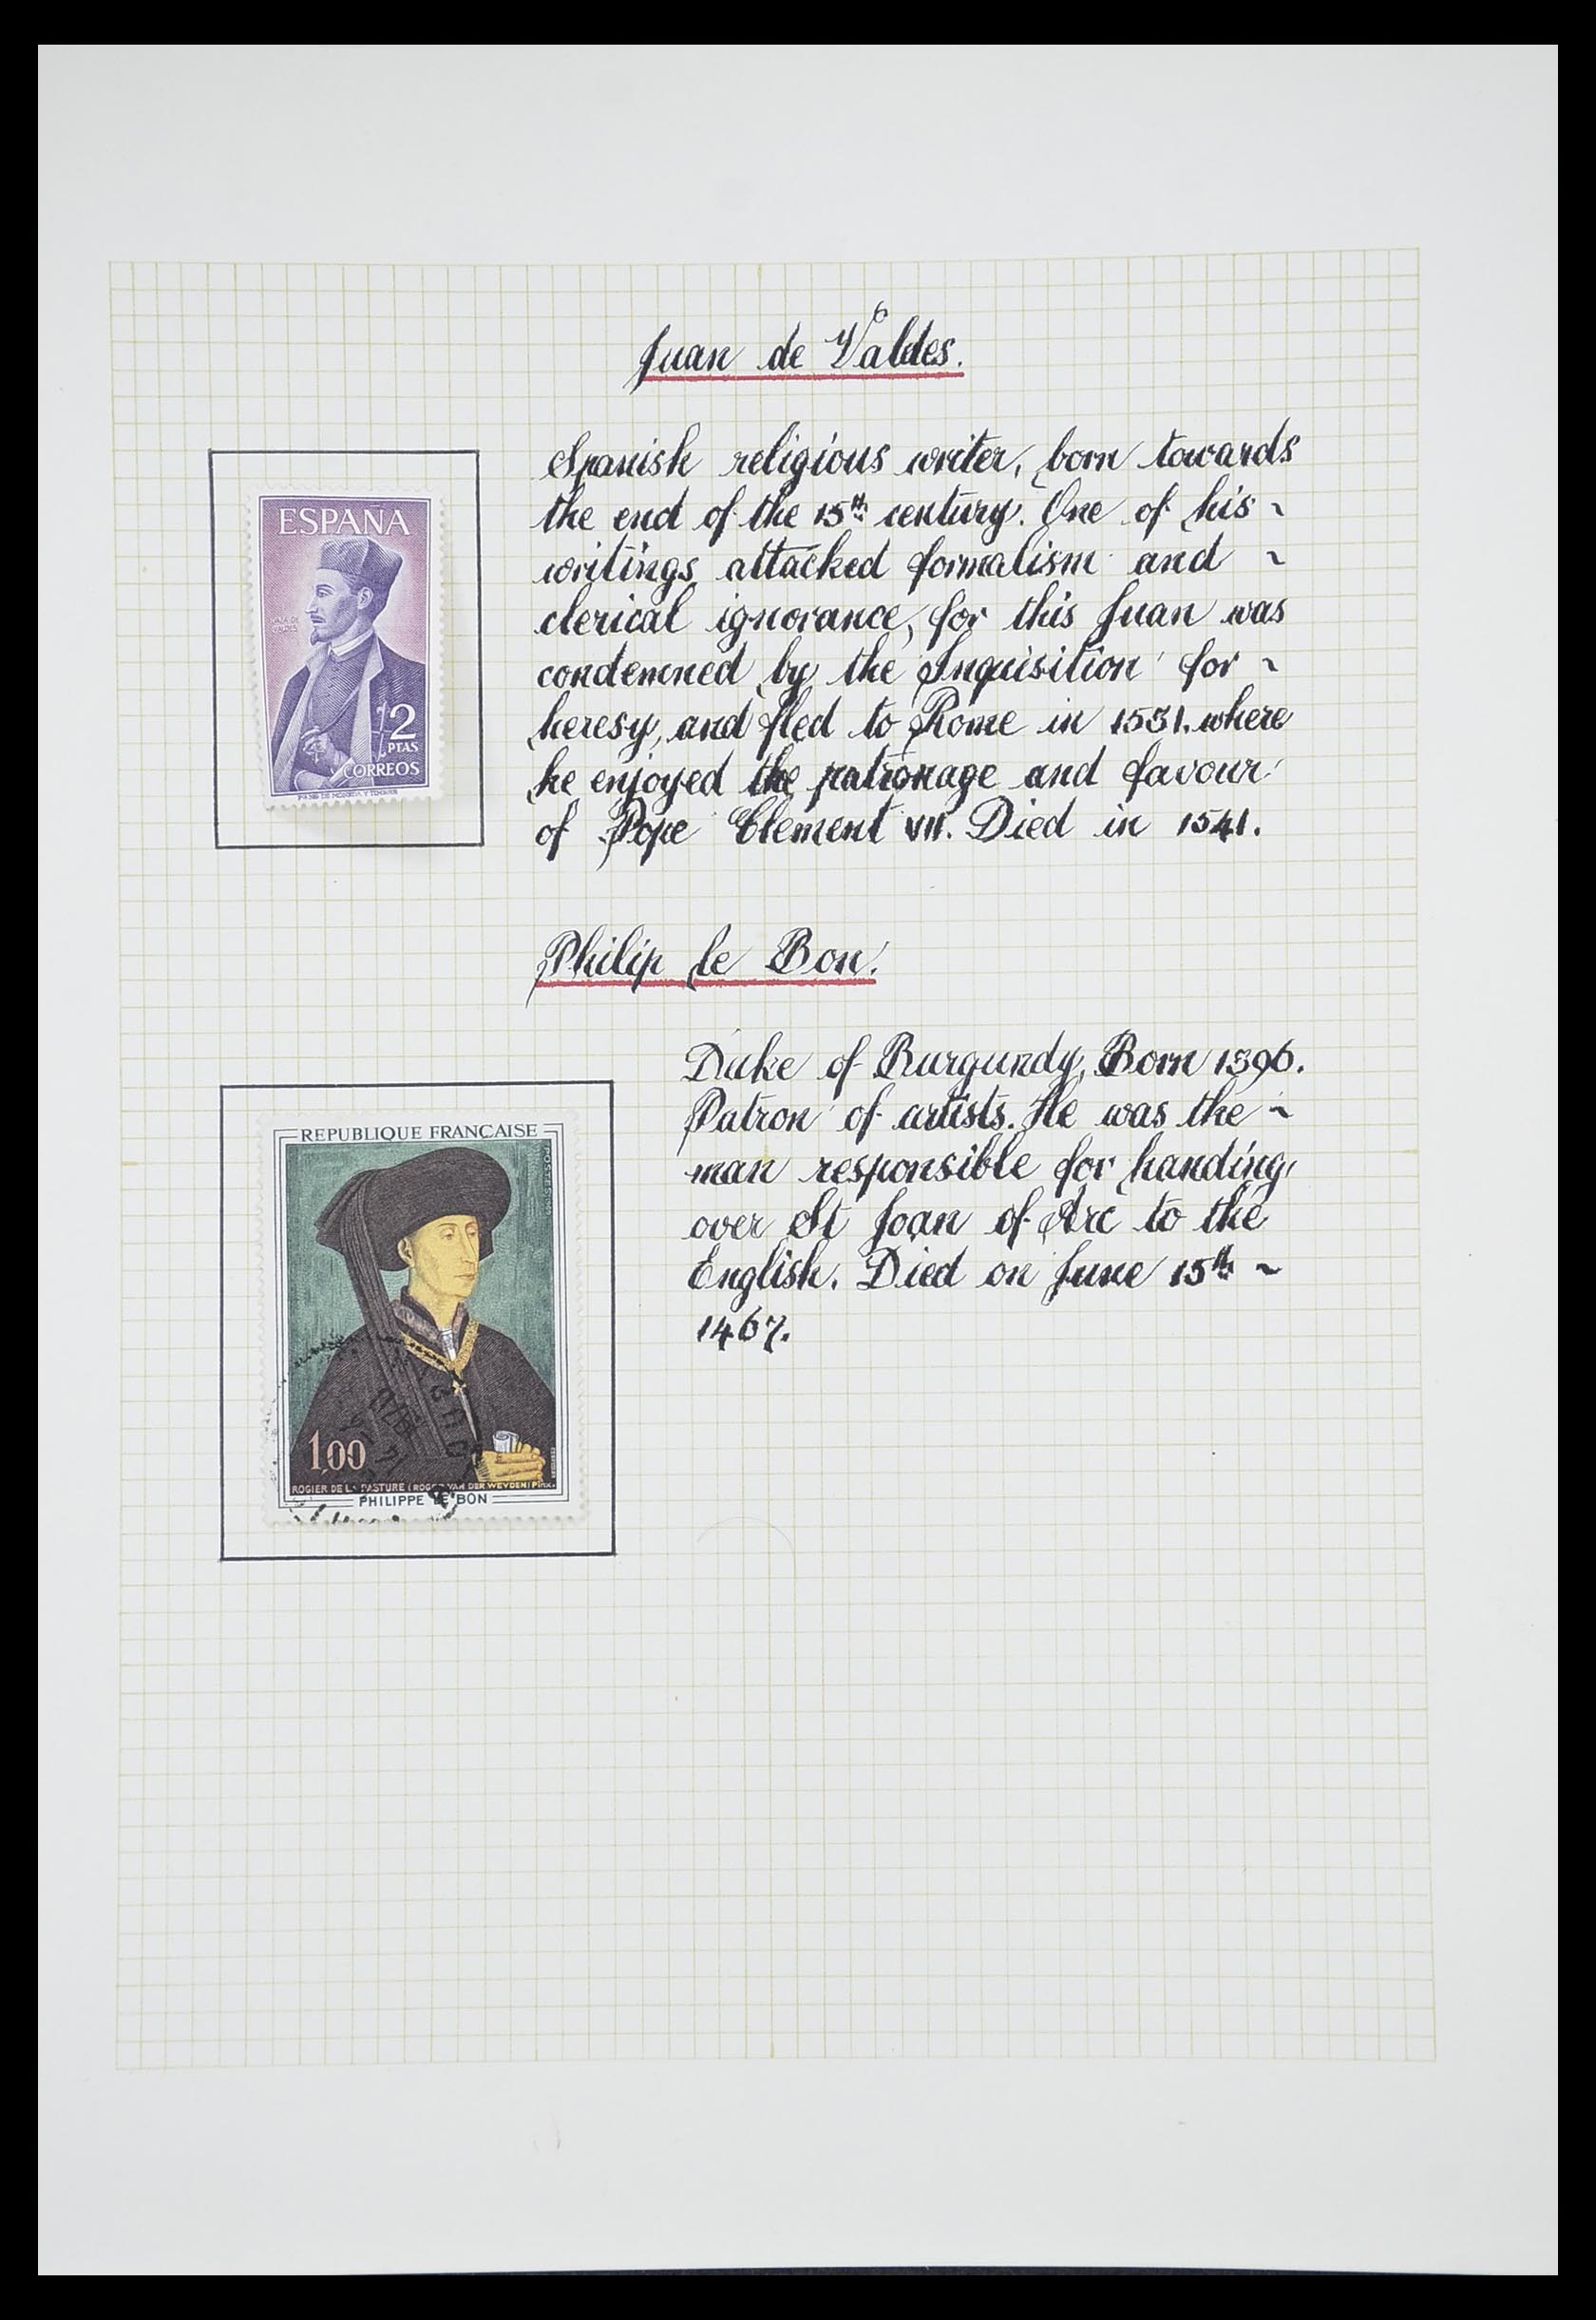 Juan de Valdes.
Spanish religious writer, born towards
the end of the 15th century. One of his ~
writings attacked formalism and ~
clerical ignorance, for this Juan was
condemned by the Inquisition for ~
heresy, and fled to Rome in 1531. where
he enjoyed the patronage and favour
of Pope Clement VII. Died in 1541.
ESPAÑA
2
PTAS
CORREOS
Philip le Bon.
Duke of Burgundy, Born 1396.
Patron of artists. He was the ~
man responsible for handing
over St Joan of Arc to the
English. Died on June 15th ~
1467.
REPUBLIQUE FRANÇAISE
POSTES
1,00
ROGIER DE LA PASTURE (ROGER VAN DER WEYDEN) PINX.
PHILIPPE LE BON